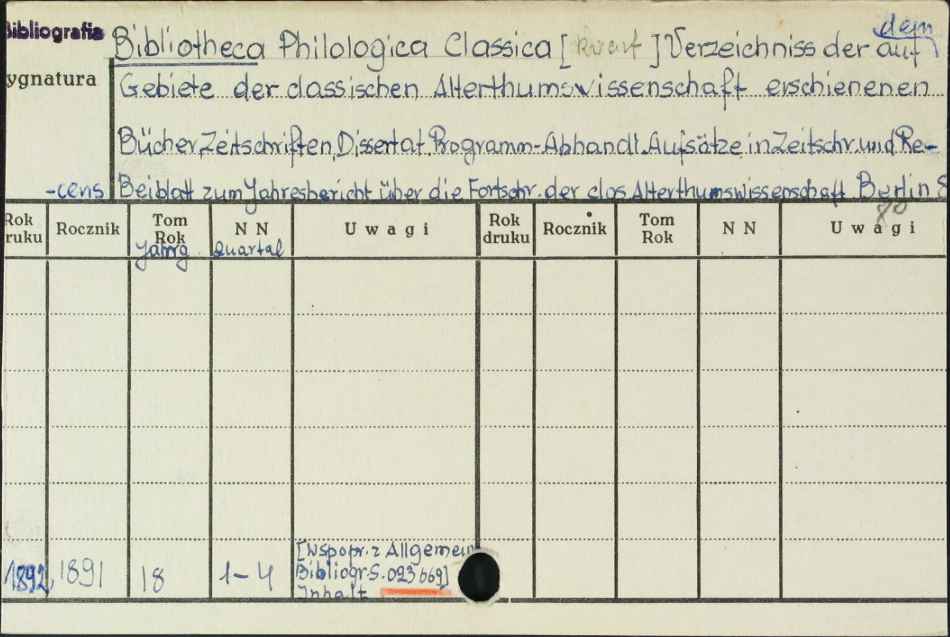 Bibliografia
dem
Bibliotheca Philologica Classica [Kwart] Verzeichniss der auf
ygnatura
Gebiete der classischen Alterthumswissenschaft erschienenen
Bücher, Zeitschriften, Dissertat. Programm-Abhandl. Aufsätze in Zeitschr. und Re-
-cens Beiblatt zum Jahresbericht über die Fortschr. der clas Alterthumswissenschaft. Berlin S
80
Rok ruku Rocznik Tom Rok N N Uwagi Rok druku Rocznik Tom Rok N N Uwagi
Jahrg. Quartal
[Wspopr. z Allgemein
1892, 1891 18 1-4 Bibliogr. S. 023669]
Inhalt